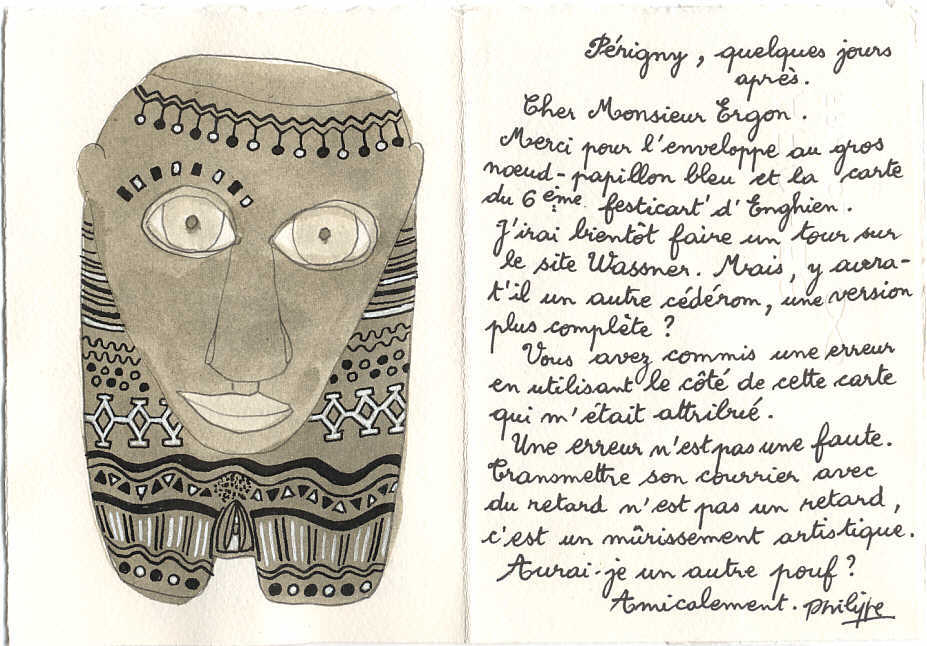 Périgny, quelques jours
après.
Cher Monsieur Ergon.
Merci pour l'enveloppe au gros
nœud-papillon bleu et la carte
du 6ème festicart' d'Enghien.
J'irai bientôt faire un tour sur
le site Wassner. Mais, y aura-
t'il un autre cédérom, une version
plus complète ?
Vous avez commis une erreur
en utilisant le côté de cette carte
qui m'était attribué.
Une erreur n'est pas une faute.
Transmettre son courrier avec
du retard n'est pas un retard,
c'est un mûrissement artistique.
Aurai-je un autre pouf ?
Amicalement. Philippe